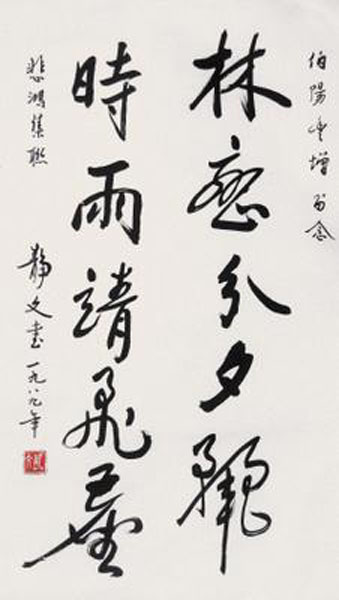 伯陽 增 留念
林 分夕
時雨靖飛塵
悲鴻集聯
靜文書一九八九年